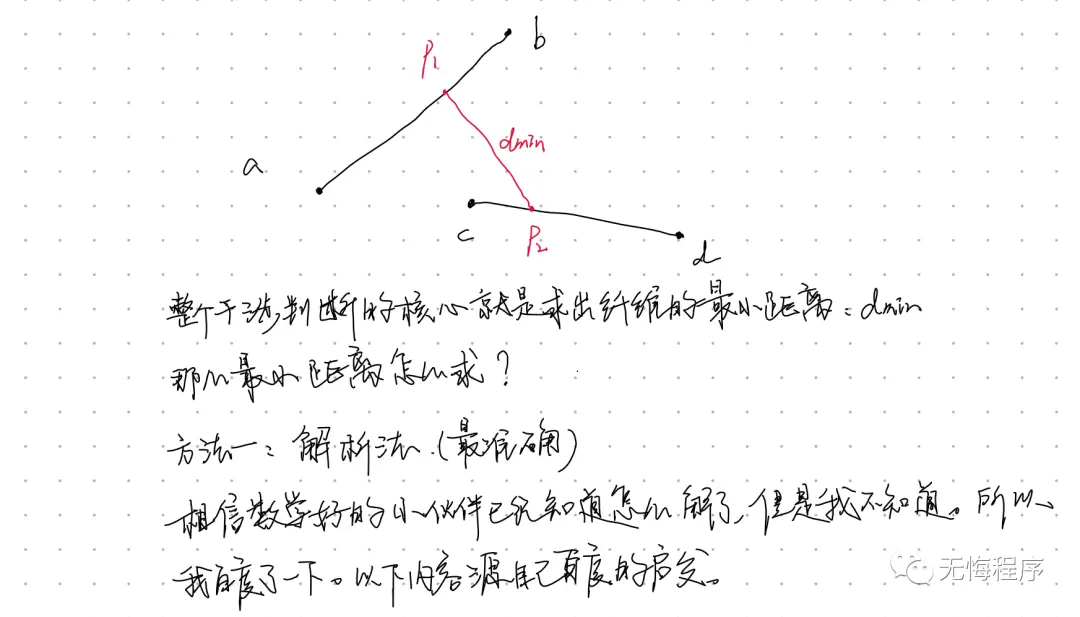 b
P₁
dmin
a
c
P₂
d
整个干涉判断的核心就是求出纤维的最小距离：dmin
那么最小距离怎么求？
方法一：解析法.(最准确)
相信数学好的小伙伴已经知道怎么解了，但是我不知道。所以
我百度了一下。以下内容源自己百度的启发。
无悔程序